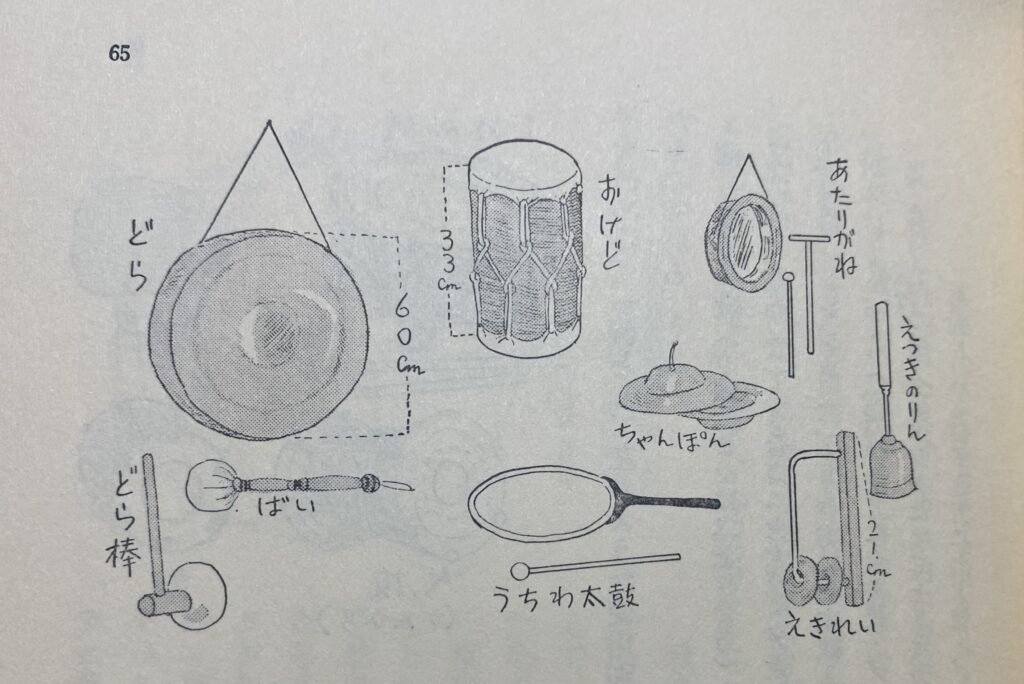 65
どら
60cm
おけど
33cm
あたりがね
えつきのりん
ちゃんぽん
どら棒
ばい
うちわ太鼓
えきれい
21cm